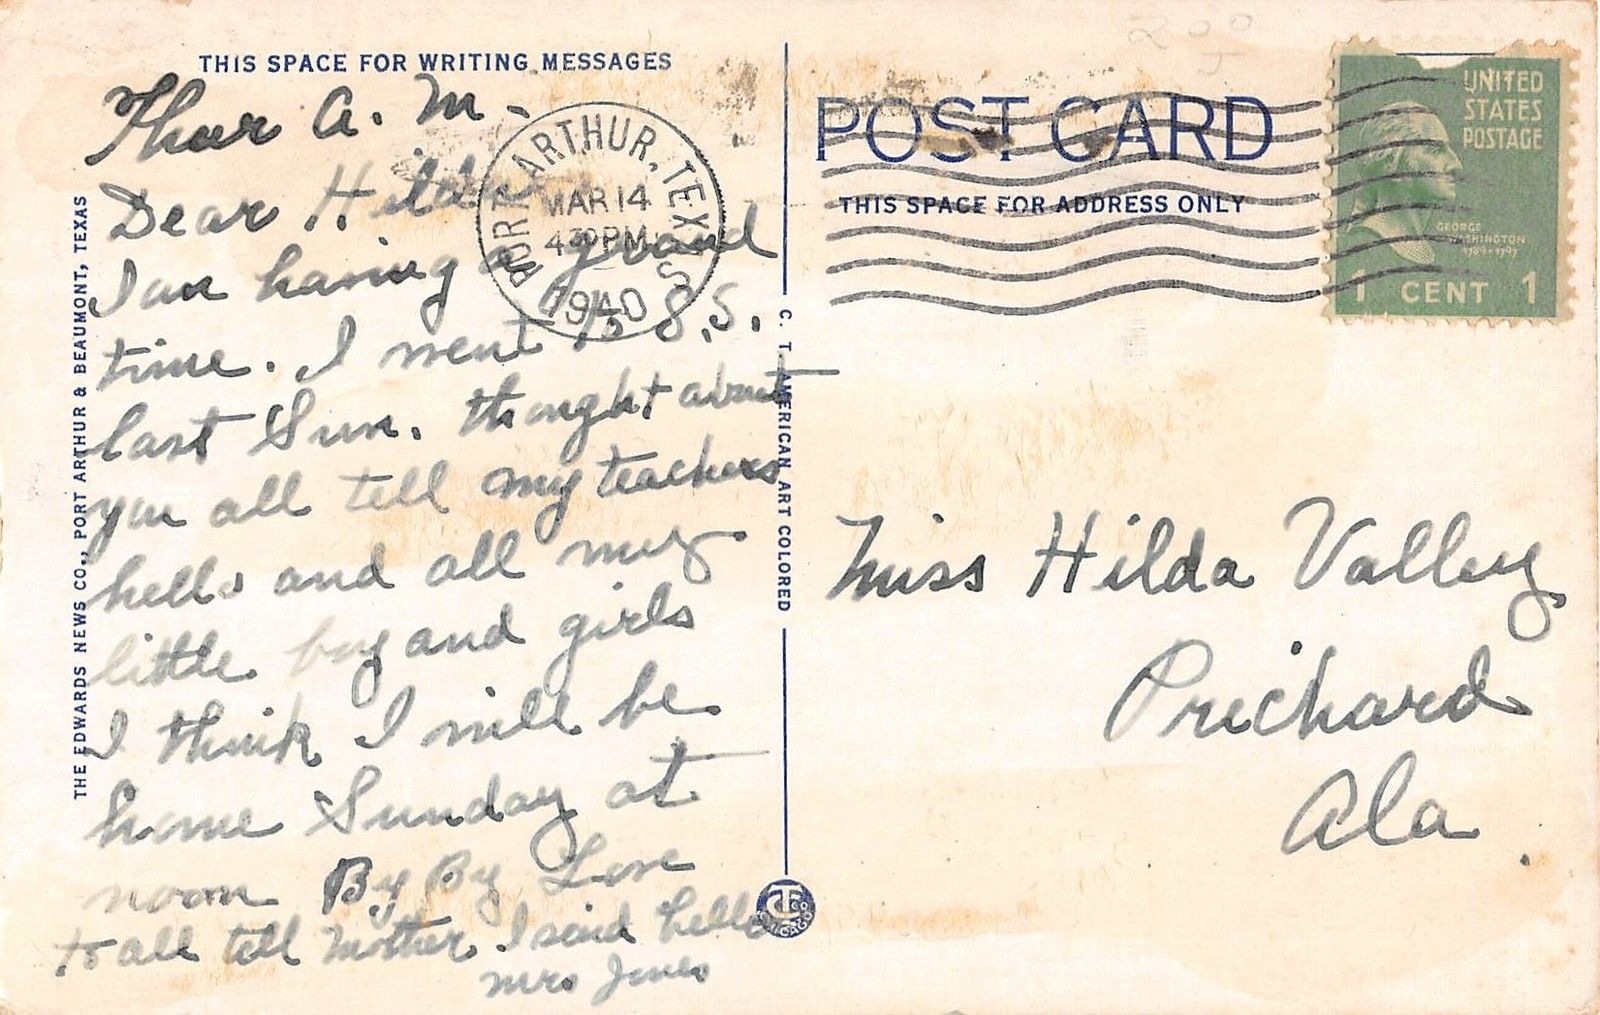 THIS SPACE FOR WRITING MESSAGES
Thur A. M.
Dear Hilda
I am having a grand
time. I went to S.S.
last Sun. thought about
you all tell my teachers
hello and all my
little boy and girls
I think I will be
home Sunday at
noon By By Love
to all tell Mother I said hello
Mrs Jones
PORT ARTHUR, TEXAS
MAR 14
430 PM
1940
THE EDWARDS NEWS CO., PORT ARTHUR & BEAUMONT, TEXAS
C. T. AMERICAN ART COLORED
CT CO
CHICAGO
200
POST CARD
THIS SPACE FOR ADDRESS ONLY
UNITED
STATES
POSTAGE
GEORGE
WASHINGTON
1789-1797
1 CENT 1
Miss Hilda Valley
Prichard
Ala